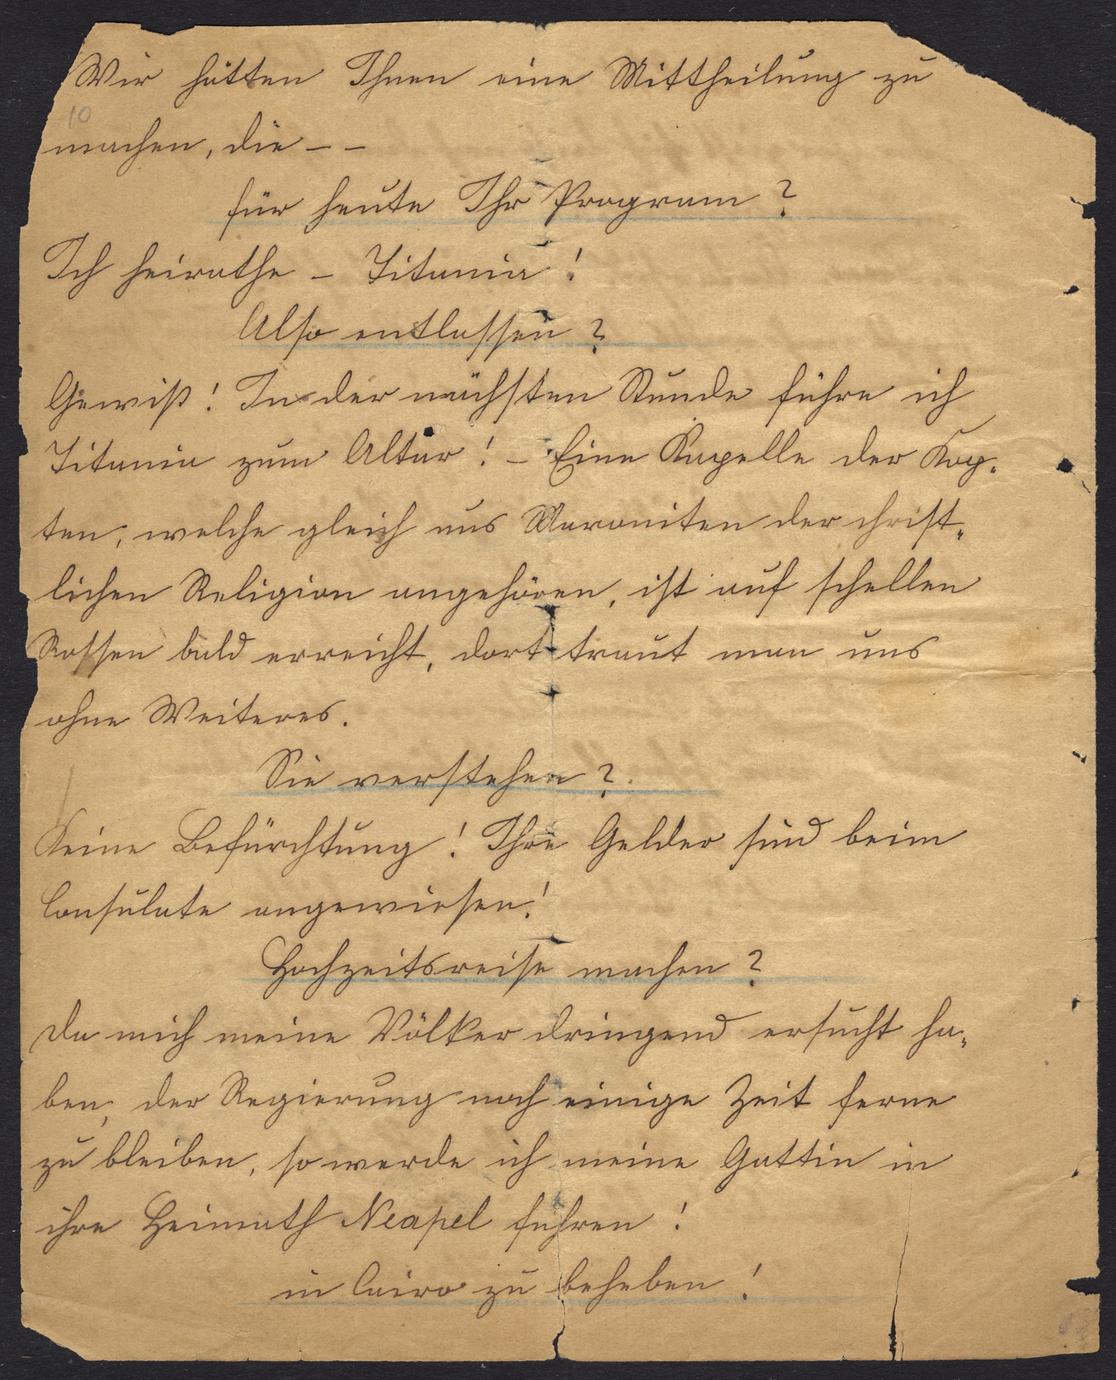 Wir hätten Ihnen eine Mittheilung zu
10
machen, die – –
für heute Ihr Program ?
Ich heirathe – Titania !
Also entlassen ?
Gewiß ! In der nächsten Stunde führe ich
Titania zum Altar ! – Eine Kapelle der Kop-
ten, welche gleich uns Maroniten der christ-
lichen Religion angehören, ist auf schellen
Rossen bald erreicht, dort traut man uns
ohne Weiteres.
Sie verstehen ?
Keine Befürchtung ! Ihre Gelder sind beim
Consulate angewiesen !
Hochzeitsreise machen ?
Da mich meine Völker dringend ersucht ha-
ben, der Regierung noch einige Zeit ferne
zu bleiben, so werde ich meine Gattin in
ihre Heimath Neapel führen !
in Cairo zu beheben !